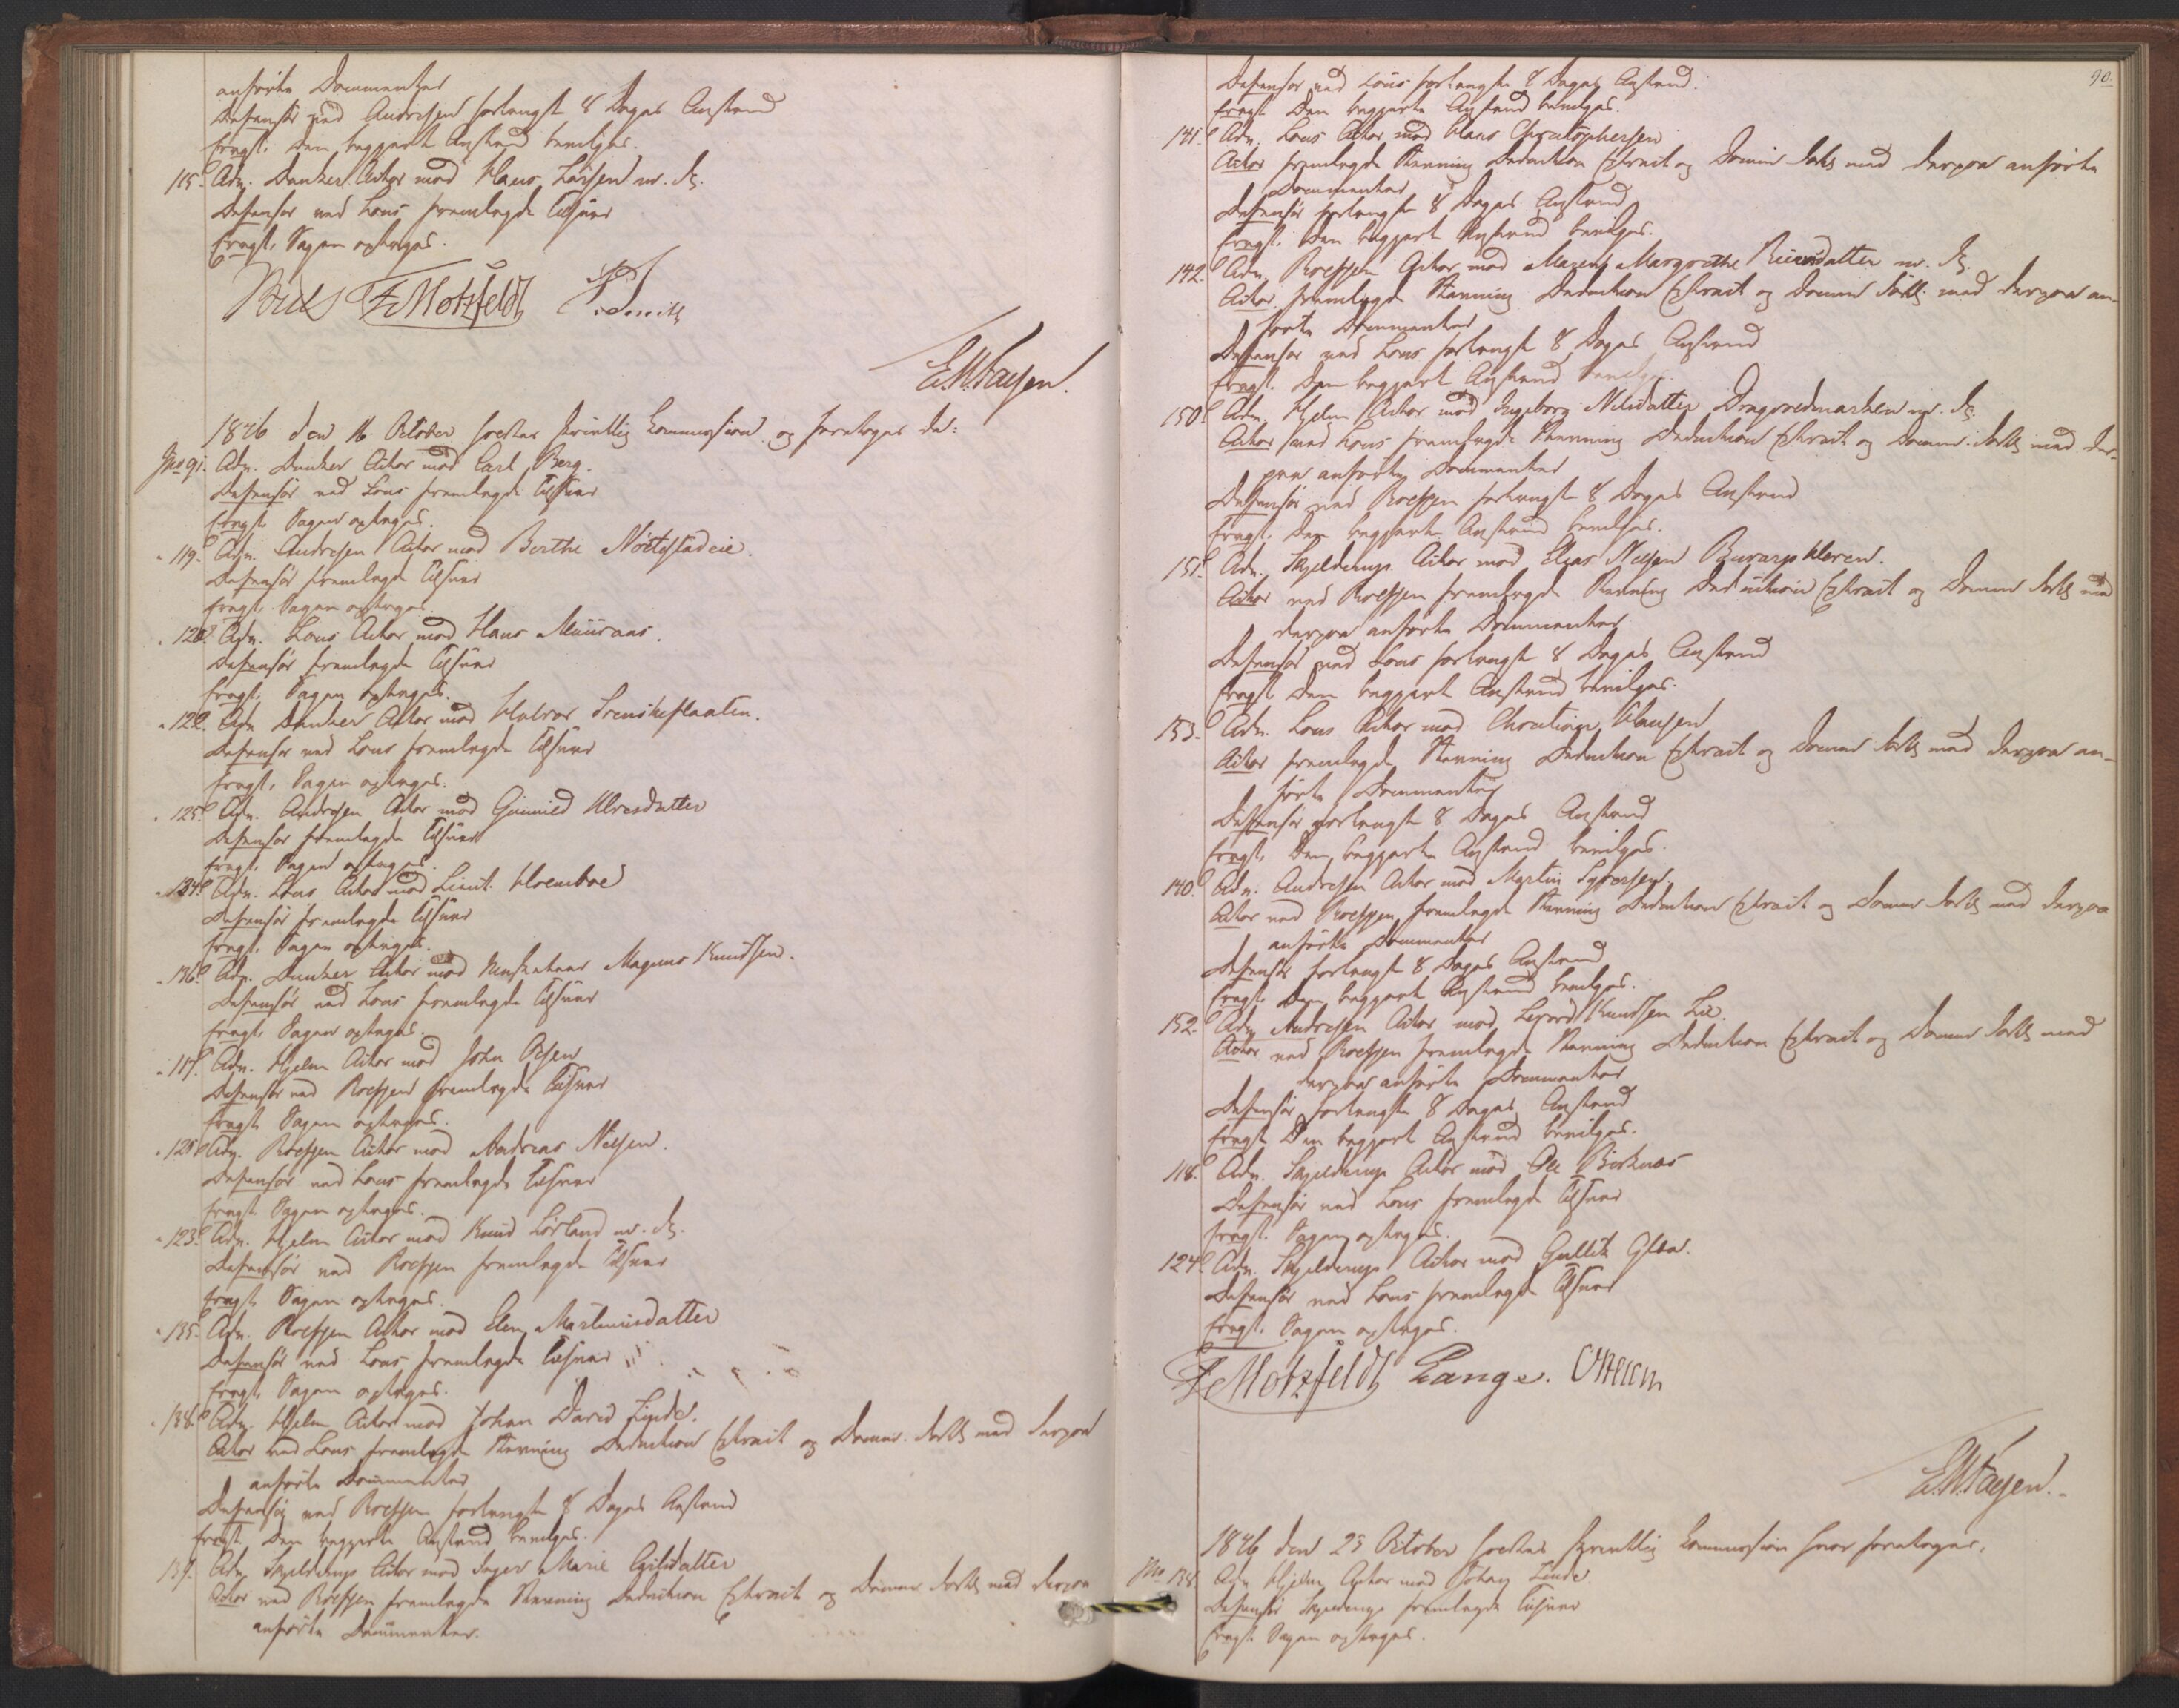 anførte Documenter
Defensor ved Andresen forlangte 8 Dages Anstand
Eragt. Den begjærte Anstand bevilges.
115. Adv. Dunker Actor mod Hans Larsen m. fl.
Defensor ved Lous fremlagde Tilsvar
Eragt. Sagen optages.
Bull F Motzfeldt P. Smith
E. W. Fayen.
1846 den 16 October holdtes skriftlig Commission og foretoges da:
No 91. Adv. Dunker Actor mod Carl Berg.
Defensor ved Lous fremlagde Tilsvar
Eragt. Sagen optages.
" 119. Adv. Andresen Actor mod Berthe Nöttestadeie.
Defensor fremlagde Tilsvar
Eragt. Sagen optages.
" 120. Adv. Lous Actor mod Hans Muuraas.
Defensor fremlagde Tilsvar
Eragt. Sagen optages.
" 122. Adv. Dunker Actor mod Halvor Svenskeflaaten.
Defensor ved Lous fremlagde Tilsvar
Eragt. Sagen optages.
" 125. Adv. Andresen Actor mod Gunnild Ulvesdatter
Defensor fremlagde Tilsvar
Eragt. Sagen optages.
" 134. Adv. Lous Actor mod Lieut. Holmboe
Defensor fremlagde Tilsvar
Eragt. Sagen optages.
" 136. Adv. Dunker Actor mod Musketeer Magnus Knudsen.
Defensor ved Lous fremlagde Tilsvar
Eragt. Sagen optages.
" 117. Adv. Hjelm Actor mod John Olsen
Defensor ved Rolfsen fremlagde Tilsvar
Eragt. Sagen optages.
" 121. Adv. Rolfsen Actor mod Andreas Nilsen.
Defensor ved Lous fremlagde Tilsvar
Eragt. Sagen optages.
" 123. Adv. Hjelm Actor mod Knud Lørland m. fl.
Defensor ved Rolfsen fremlagde Tilsvar
Eragt. Sagen optages.
" 135. Adv. Rolfsen Actor mod Elen Martinusdatter
Defensor ved Lous fremlagde Tilsvar
Eragt. Sagen optages.
" 138. Adv. Hjelm Actor mod Johan David Linde.
Actor ved Lous fremlagde Stevning Deduction Extract og Domme samt med derpaa
anførte Documenter
Defensor ved Rolfsen forlangte 8 Dages Anstand
Eragt. Den begjærte Anstand bevilges.
139. Adv. Skjelderup Actor mod Inger Marie Gilsdatter
Actor ved Rolfsen fremlagde Stevning Deduction Extract og Domme med derpaa
anførte Documenter.
90.
Defensor ved Lous forlangte 8 Dages Anstand.
Eragt. Den begjærte Anstand bevilges.
141. Adv. Lous Actor mod Hans Christophersen
Actor fremlagde Stevning Deduction Extract og Domme med derpaa anførte
Documenter
Defensor forlangte 8 Dages Anstand
Eragt. Den begjærte Anstand bevilges.
142. Adv. Rolfsen Actor mod Maren Margrethe m. fl.
Actor fremlagde Stevning Deduction Extract og Domme med derpaa an-
førte Documenter
Defensor ved Lous forlangte 8 Dages Anstand
Eragt. Den begjærte Anstand bevilges.
150. Adv. Hjelm Actor mod Ingeborg Nilsdatter Dragvedmarken m. fl.
Actor ved Lous fremlagde Stevning Deduction Extract og Domme med der-
paa anførte Documenter
Defensor ved Rolfsen forlangte 8 Dages Anstand
Eragt. Den begjærte Anstand bevilges.
151. Adv. Skjelderup Actor mod Elias Nilsen
Actor ved Rolfsen fremlagde Stevning Deduction Extract og Domme med
derpaa anførte Documenter
Defensor ved Lous forlangte 8 Dages Anstand
Eragt. Den begjærte Anstand bevilges.
153. Adv. Lous Actor mod Christian Clausen
Actor fremlagde Stevning Deduction Extract og Domme med derpaa an-
førte Documenter
Defensor forlangte 8 Dages Anstand
Eragt. Den begjærte Anstand bevilges.
140. Adv. Andresen Actor mod Martin Syversen.
Actor ved Rolfsen fremlagde Stevning Deduction Extract og Domme med derpaa
anførte Documenter
Defensor forlangte 8 Dages Anstand
Eragt. Den begjærte Anstand bevilges.
152. Adv. Andresen Actor mod Knudsen Lie.
Actor ved Rolfsen fremlagde Stevning Deduction Extract og Domme med
derpaa anførte Documenter
Defensor forlangte 8 Dages Anstand
Eragt. Den begjærte Anstand bevilges.
118. Adv. Skjelderup Actor mod Ole Birknæs
Defensor ved Lous fremlagde Tilsvar
Eragt. Sagen optages.
124. Adv. Skjelderup Actor mod Gullik
Defensor ved Lous fremlagde Tilsvar
Eragt. Sagen optages.
F Motzfeldt Lange.
E. W. Fayen.
1846 den 23 October holdtes skriftlig Commission hvor foretoges.
No 138. Adv. Hjelm Actor mod Johan Linde.
Defensor Skjelderup fremlagde Tilsvar
Eragt. Sagen optages.